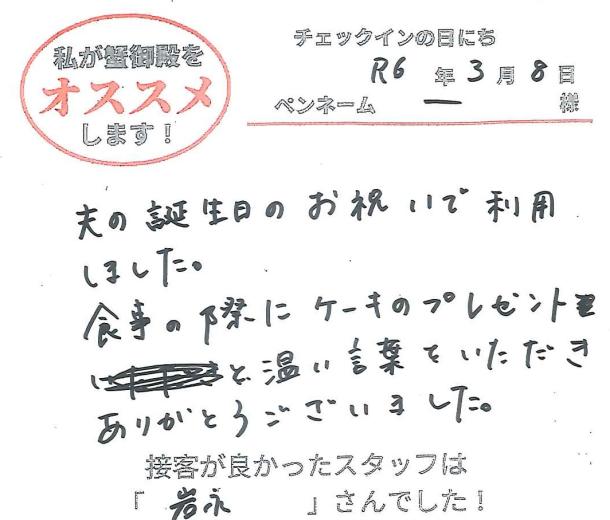 私が蟹御殿を
オススメ
します！
チェックインの日にち
R6 年 3 月 8 日
ペンネーム ー 様
夫の誕生日のお祝いで利用
しました。
食事の際にケーキのプレゼント
と温い言葉をいただき
ありがとうございました。
接客が良かったスタッフは
「岩永」さんでした！